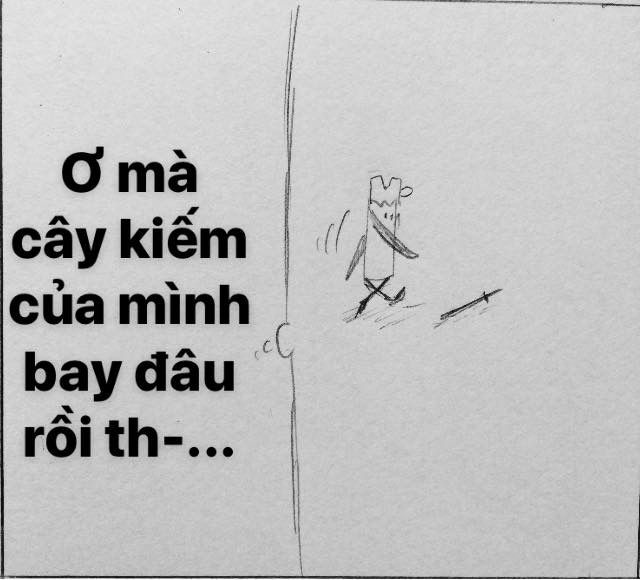 Ơ mà
cây kiếm
của mình
bay đâu
rồi th-...